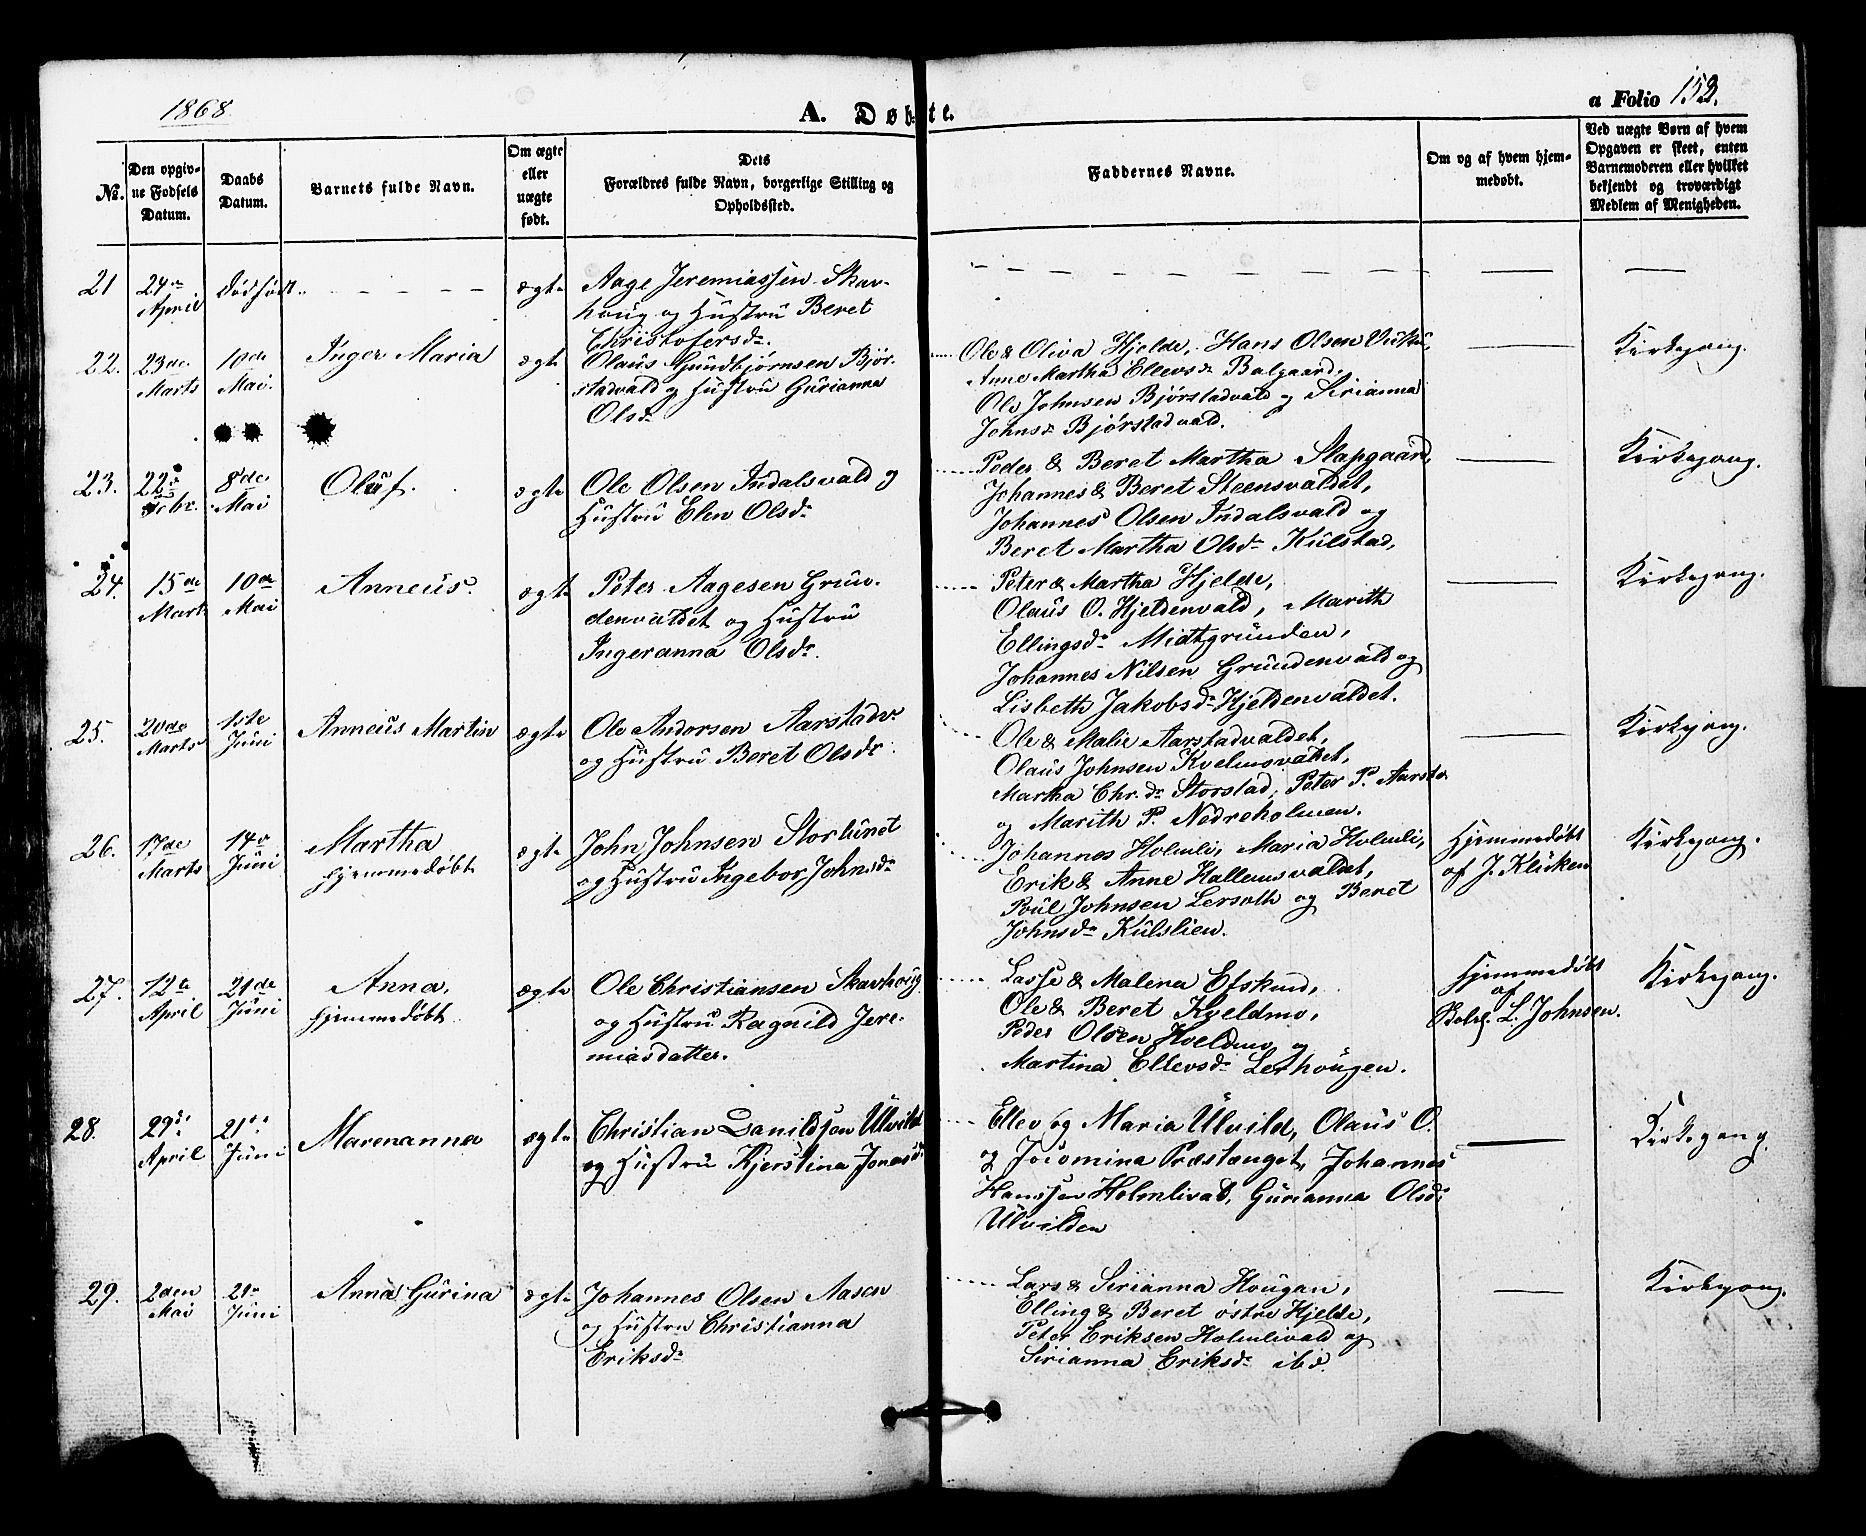 1868.
A. Døbte.
a Folio 152.
No.
Den opgivne Fødsels Datum.
Daabs Datum.
Barnets fulde Navn.
Om ægte eller uægte født.
Dets Forældres fulde Navn, borgerlige Stilling og Opholdssted.
Faddernes Navne.
Om og af hvem hjemmedøbt.
Ved uægte Børn af hvem Opgaven er skeet, enten Barnemoderen eller hvilket bekjendt og troværdigt Medlem af Menigheden.
21 24de April dødfødt. — — — — — ægte
Aage Jeremiassen Skav-
houg og Hustru Beret
Christofersdr.
22. 23de Marts 10de Mai. Inger Maria ægte
Olaus Gundbjørnsen Bjør-
stadvald og Hustru Gurianna
Olsdr
Ole & Oliva Hjelde, Hans Olsen
Anne Martha Ellevsdr Balgaard,
Ole Johnsen Bjørstadvald og Sirianna
Johnsdr Bjørstadvald.
Kirkegang.
23. 22de Febr. 8de Mai Oluf. ægte
Ole Olsen Indalsvald og
Hustru Elen Olsdr
Peder & Beret Martha Slapgaard,
Johannes & Beret Steensvaldet,
Johannes Olsen Indalsvald og
Beret Martha Olsdr Kulstad,
Kirkegang.
24. 15de Marts 10de Mai Anneus. ægte
Peter Aagesen Grun-
denvaldet og Hustru
Ingeranna Olsdr.
Peter & Martha Hjelde,
Olaus O. Hjeldenvald, Marith
Ellingsdr Midtgrunden,
Johannes Nilsen Grundenvald og
Lisbeth Jakobsdr Hjeldenvaldet.
Kirkegang.
25. 20de Marts 1ste Juni Anneus Martin ægte
Ole Andersen Aarstadv.
og Hustru Beret Olsdr.
Ole & Malie Aarstadvaldet,
Olaus Johnsen Kvelmsvaldet,
Martha Chr.dr Storstad, Peter P. Aarstv
og Marith P. Nedreholmen.
Kirkegang.
26. 17de Marts 14de Juni Martha
hjemmedøbt ægte
John Johnsen Storlunet
og Hustru Ingebor Johnsdr
Johannes Holmli, Maria Holmli,
Erik & Anne Hallemsvaldet,
Poul Johnsen Lersoth og Beret
Johnsdr Kulslien.
Hjemmedøbt
af J. Klükken
Kirkegang.
27. 12te April 21de Juni Anna,
hjemmedøbt. ægte
Ole Christiansen Skavhoug
og Hustru Ragnild Jere-
miasdatter.
Lasse & Malena Efskind,
Ole & Beret Kveldmo,
Peder Olsen Kveldmo og
Martina Ellevsdr Lerhougen.
Hjemmedøbt
af
Skolel. L. Johnsen.
Kirkegang.
28. 29de April 21de Juni Marenanna ægte
Christian Danildsen Ulvild
og Hustru Kjerstina Jonasdr
Ellev og Maria Ulvild, Olaus O.
og Jocomina Præstænget, Johannes
Hanssen Holmlivald, Gurianna Olsdr
Ulvilden
Kirkegang.
29. 2den Mai 21de Juni Anna Gurina ægte
Johannes Olsen Aasen
og Hustru Christianna
Eriksdr
Lars & Sirianna Hougan,
Elling & Beret østre Hjelde,
Peter Eriksen Holmlivald og
Sirianna Eriksdr ibd.
Kirkegang.